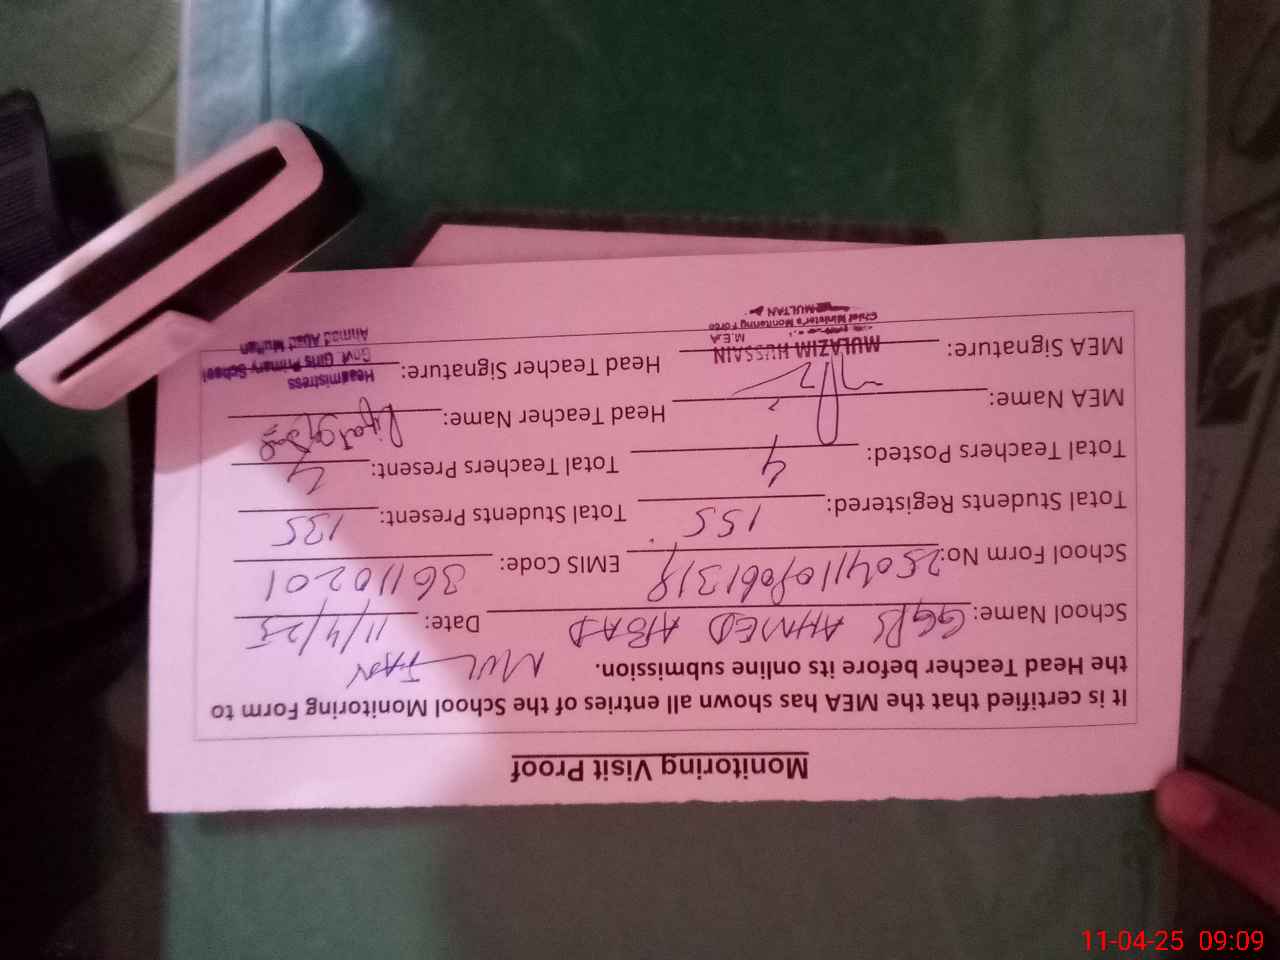 Monitoring Visit Proof
It is certified that the MEA has shown all entries of the School Monitoring Form to
the Head Teacher before its online submission. MUL TAN
School Name: GGPS AHMED ABAD Date: 11/4/25
School Form No: EMIS Code: 36110201
Total Students Registered: 155 Total Students Present: 135
Total Teachers Posted: 4 Total Teachers Present: 4
MEA Name: Head Teacher Name:
MEA Signature: Head Teacher Signature:
MULAZIM HUSSAIN
M.E.A
Chief Minister's Monitoring Force
MULTAN
Headmistress
Govt. Girls Primary School
Ahmad Abad Multan
11-04-25 09:09